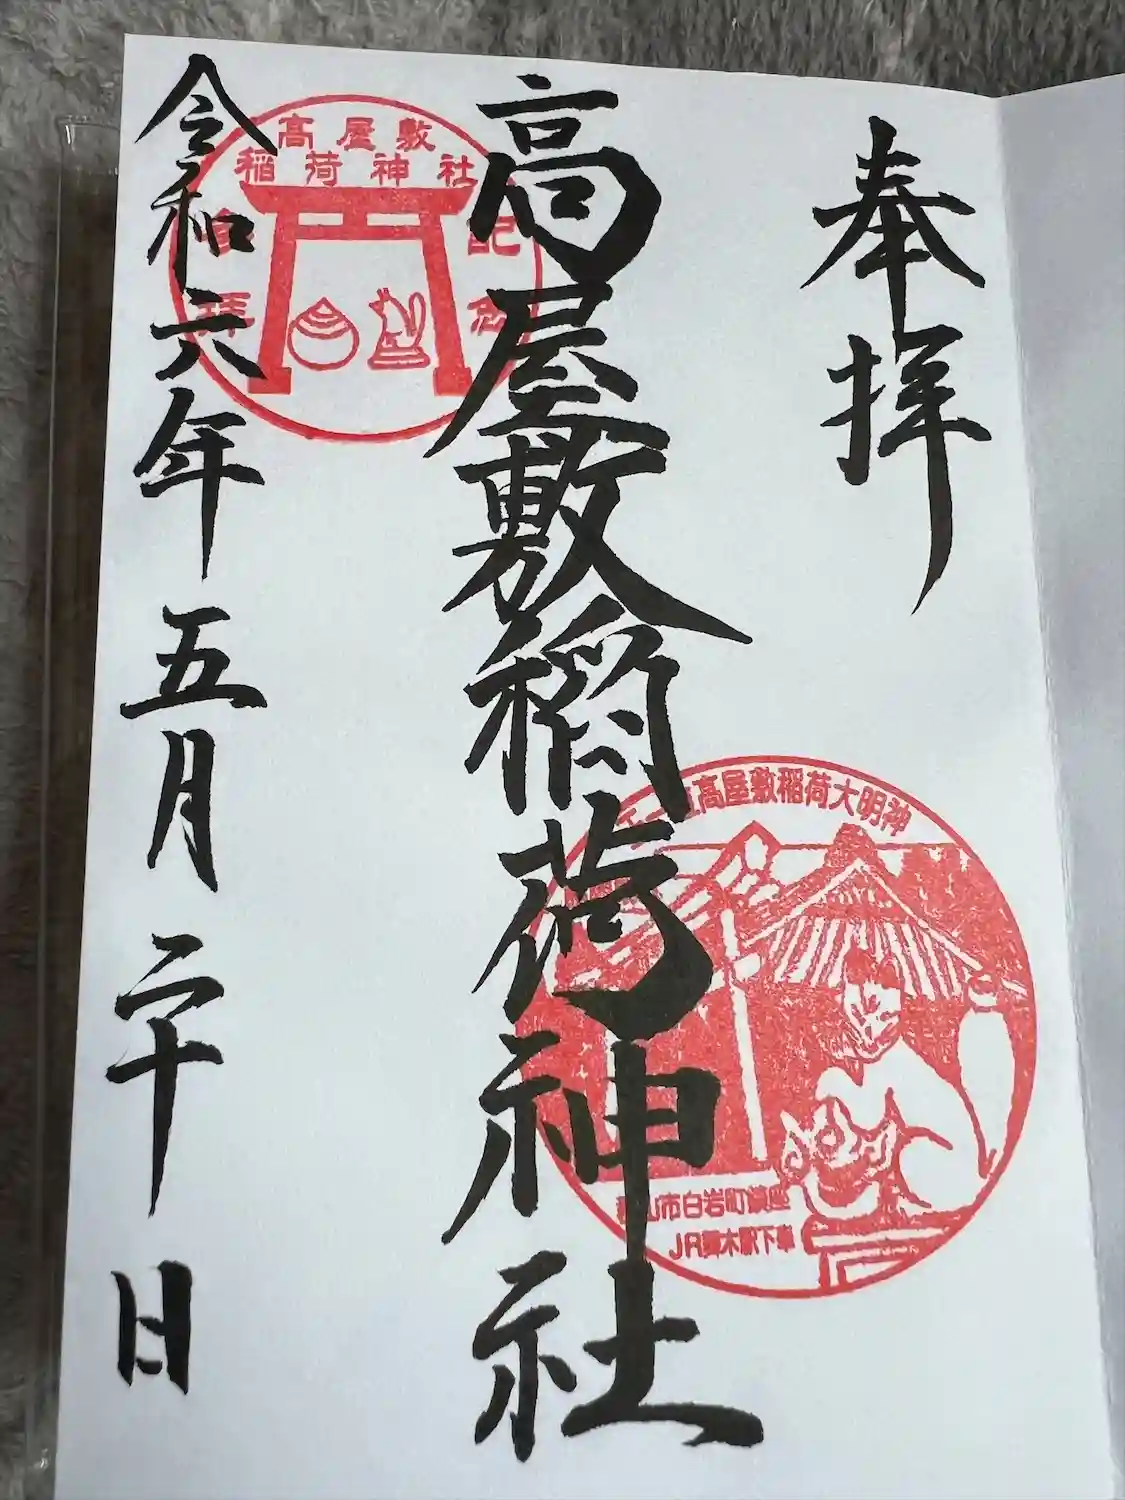 奉拝
高屋敷稲荷神社
令和六年五月二十日
高屋敷
稲荷神社
参拝
記念
高屋敷稲荷大明神
郡山市白岩町鎮座
JR舞木駅下車